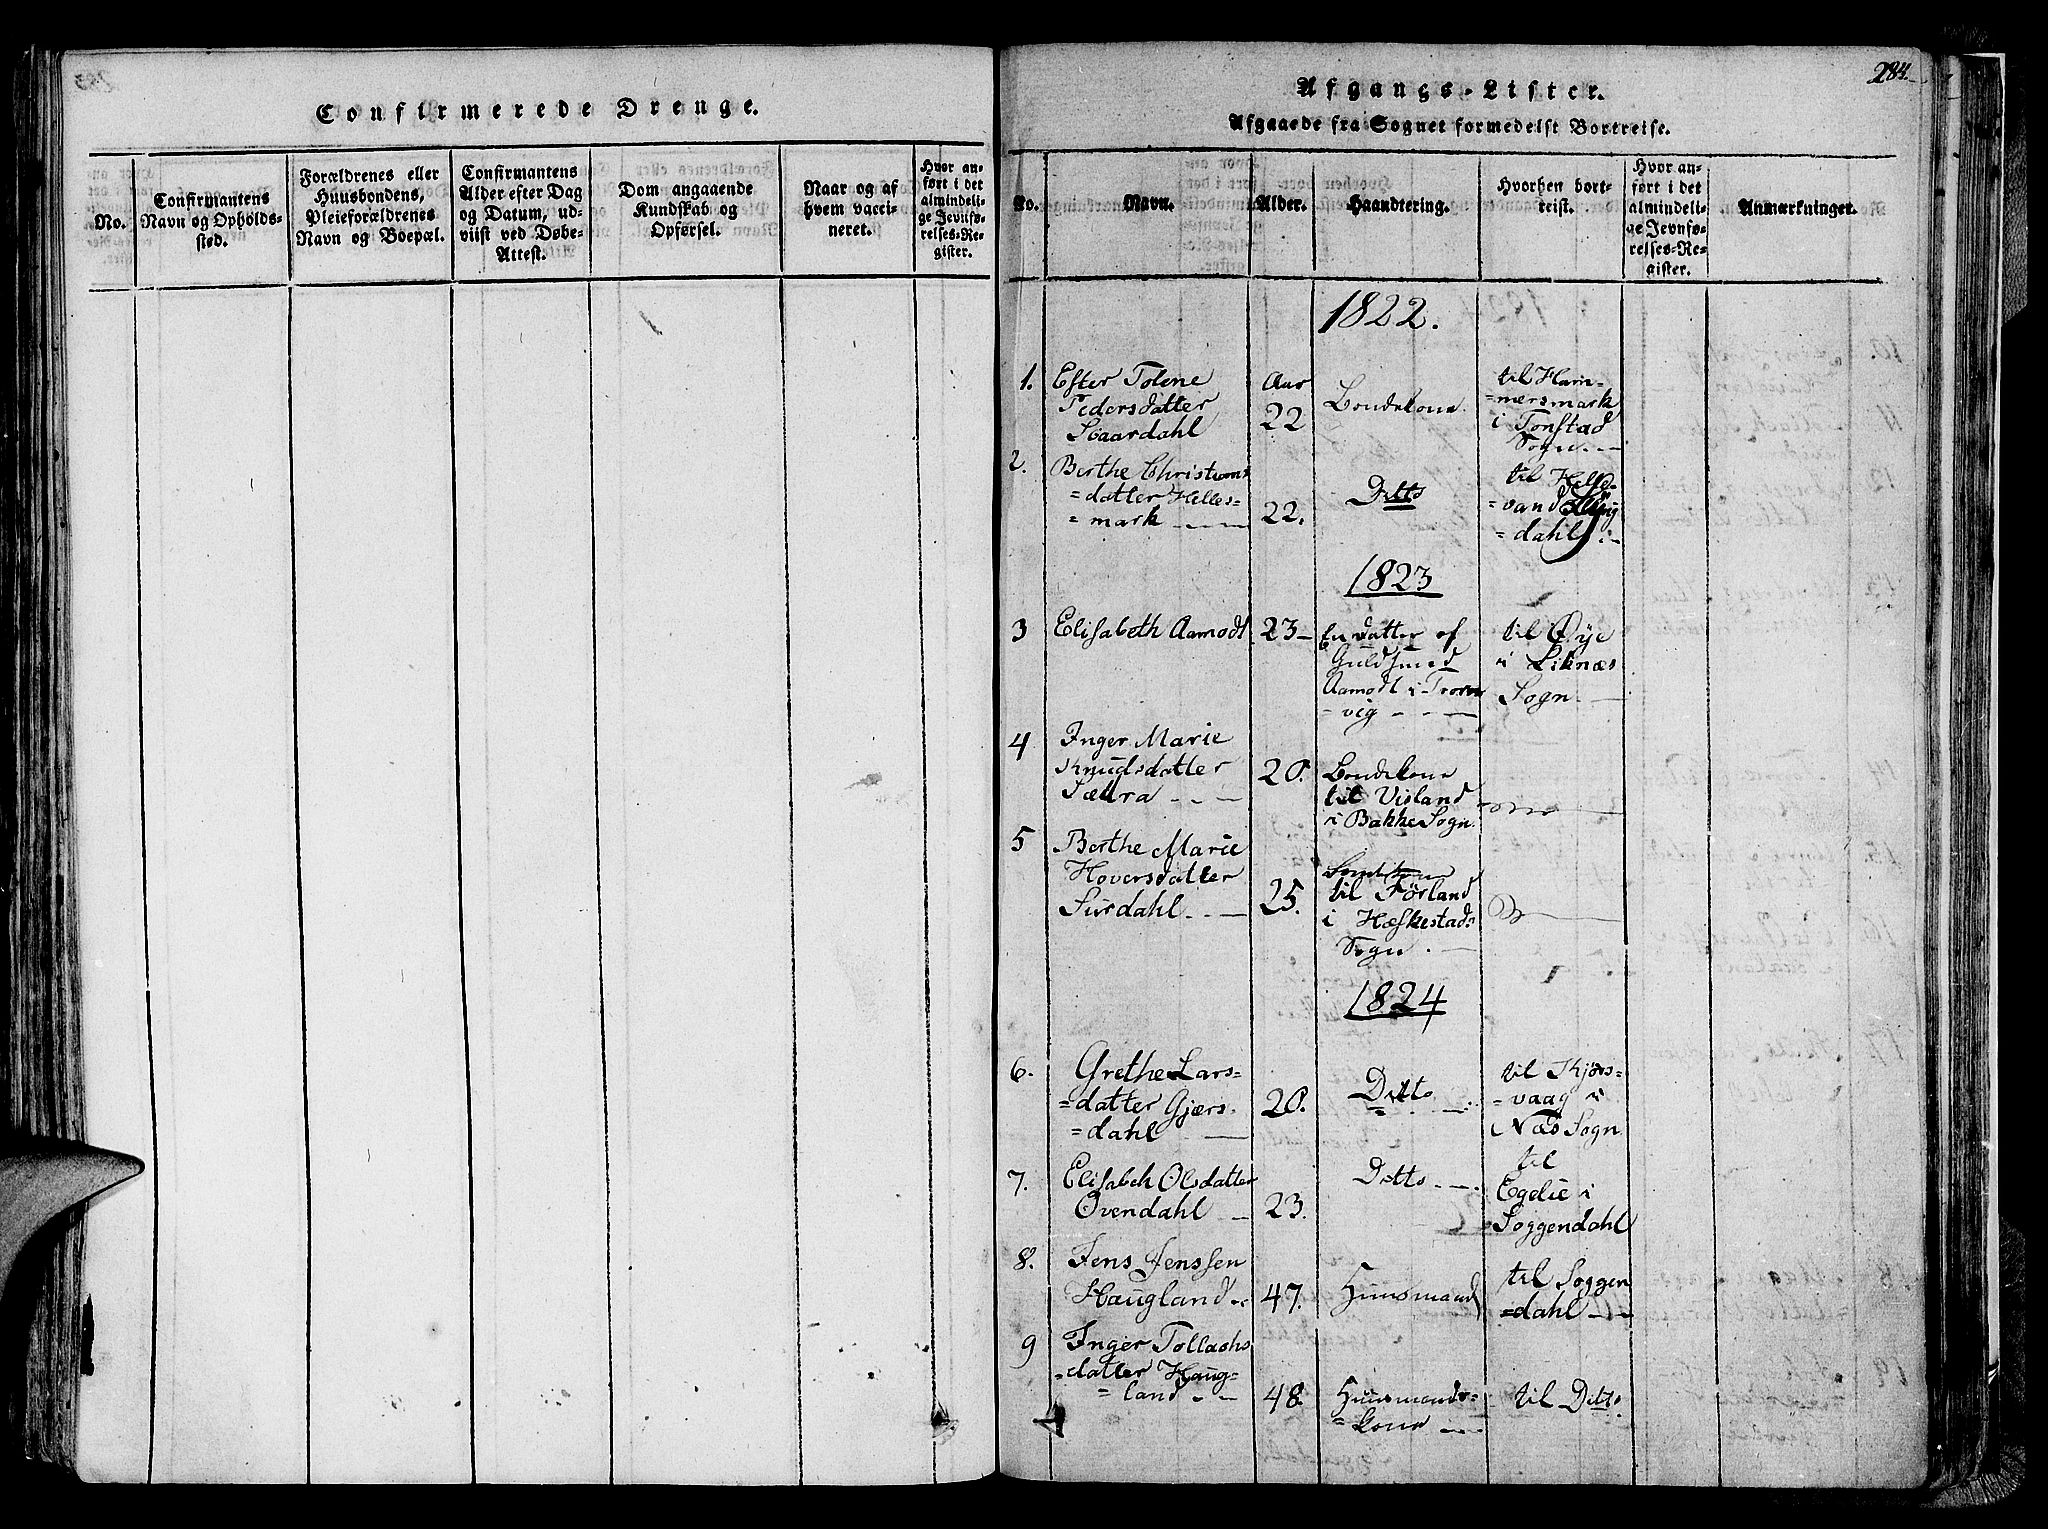 Confirmerede Drenge.
No.
Confirmantens
Navn og Opholds-
sted.
Forældrenes eller
Huusbondens,
Pleieforældrenes
Navn og Boepæl.
Confirmantens
Alder efter Dag
og Datum, ud-
viist ved Døbe-
Attest.
Dom angaaende
Kundskab og
Opførsel.
Naar og af
hvem vacci-
neret.
Hvor an-
ført i det
almindeli-
ge Jevnfø-
relses-Re-
gister.
284.
Afgangs-Lister.
Afgaaede fra Sognet formedelst Bortreise.
No.
Navn.
Alder.
Haandtering.
Hvorhen bort-
reist.
Hvor an-
ført i det
almindeli-
ge Jevnfø-
relses-Re-
gister.
Anmærkninger.
1822.
1.
Ester Tolene
Pedersdatter
Svaardahl
Aar
22
Bondekone
til Ham=
=mersmark
i Tonstad
Sogn
2.
Berthe Christians
=datter Helles=
=mark
22.
Ditto
til
=vand
=dahl
1823
3
Elisabeth Aamodt
23
En datter af
Guldsmed
Aamodt i
=vig
til Øye
i Liknæs
Sogn
4
Inger Marie
Knudsdatter
20.
Bondekone
til Visland
i Bakke Sogn
5
Berthe Marie
Hoversdatter
Surdahl
25.
til Førland
i Hæskestads
Sogn
1824
6.
Grethe Lars=
=datter Gjærs=
=dahl
20.
Ditto
til Kjørs=
=vaag i
Næs Sogn
7.
Elisabeth Olsdatter
Ovendahl
23.
Ditto
til
Egelie i
Soggendahl
8.
Jens Jenssen
Haugland
47.
Huusmand
til Soggen
=dahl
9
Inger Tollachs
=datter Haug=
=land
48.
Huusmands=
=kone
til Ditto